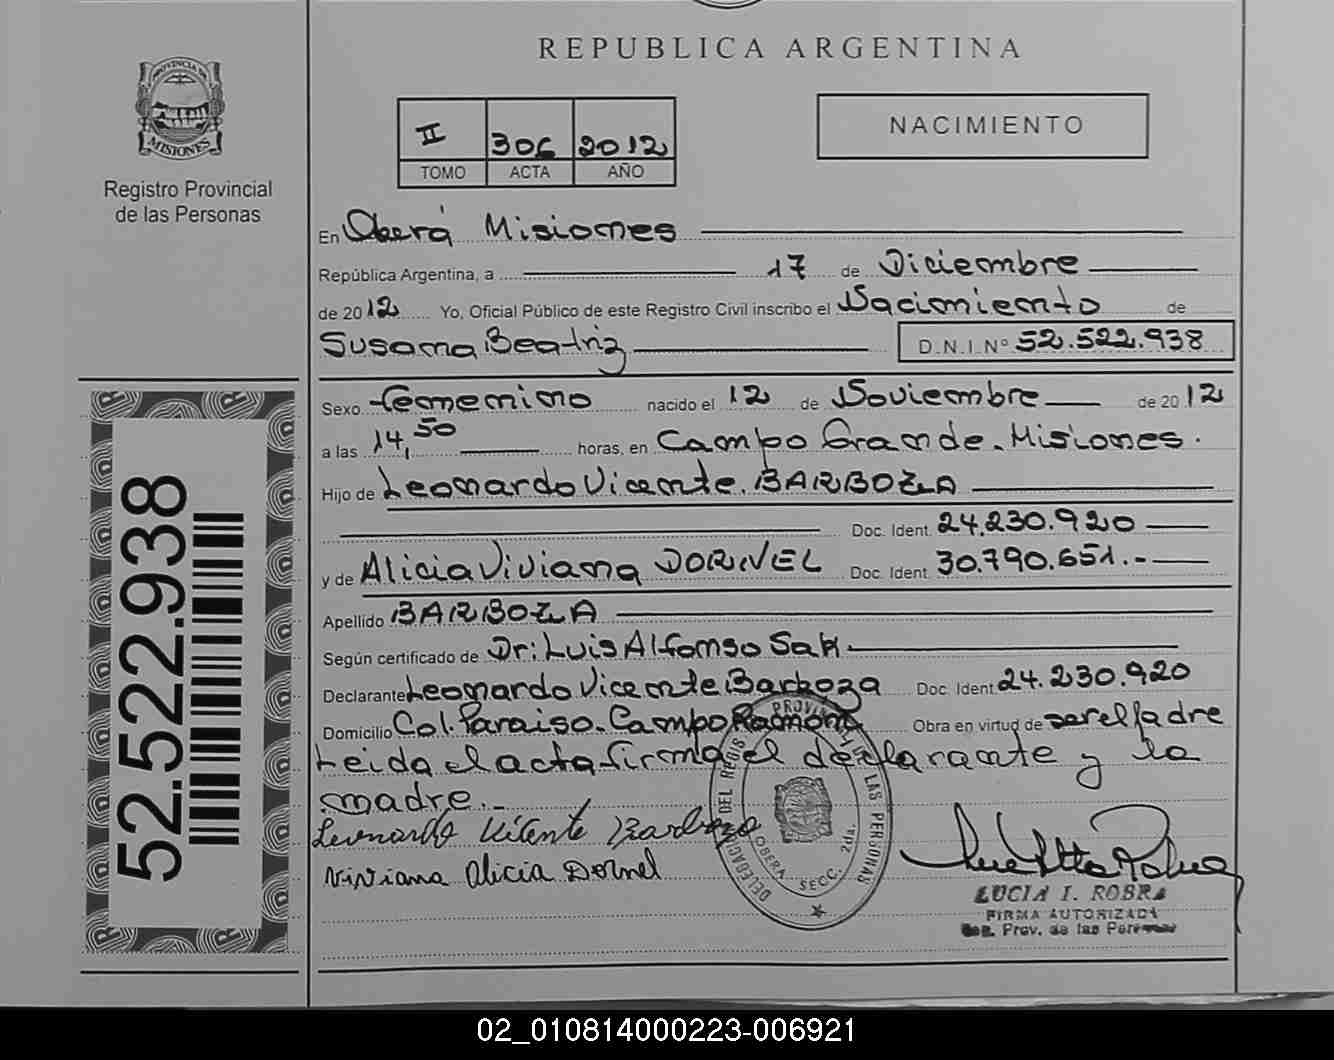 REPUBLICA ARGENTINA
PROVINCIA DE
MISIONES
Registro Provincial
de las Personas
II 306 2012
TOMO ACTA AÑO
NACIMIENTO
En Oberá Misiones
República Argentina, a 17 de Diciembre
de 2012 Yo, Oficial Público de este Registro Civil inscribo el Nacimiento de
Susana Beatriz D.N.I.Nº 52.522.938
Sexo femenino nacido el 12 de Noviembre de 2012
a las 14,50 horas, en Campo Grande. Misiones.
Hijo de Leonardo Vicente. BARBOZA
Doc. Ident. 24.230.920
y de Alicia Viviana DORNEL Doc. Ident. 30.790.651.-
Apellido BARBOZA
Según certificado de Dr: Luis Alfonso Sak
Declarante Leonardo Vicente Barboza Doc. Ident. 24.230.920
Domicilio Col. Paraiso. Campo Ramón Obra en virtud de ser el Padre
Leida el acta firma el declarante y la
madre.-
Leonardo Vicente Barboza
Viviana Alicia Dornel
DEL REGIS PROVIN LAS PERSONAS
OBERA SECC. 2da.
LUCIA I. ROBRA
FIRMA AUTORIZADA
Reg. Prov. de las Personas
52.522.938
02_010814000223-006921